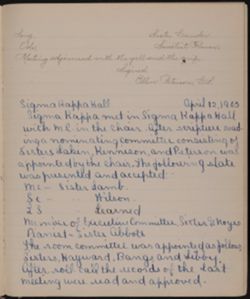 Song
Ode
Meeting adjourned with the yell and the
Signed
Sigma Kappa Hall April 12, 1905
Sigma Kappa met in Sigma Kappa Hall
with M.C. in the chair. After scripture read-
ing a nominating committee consisting of
Sisters Eaken, Kennison, and Peterson was
appointed by the chair. The following slate
was presented and accepted
M.C. - Sister Lamb.
Wilson.
Learned
Member of Executive Committee, Sister Noyes
Sister Abbott
The room committee was appointed as follows,
Sisters, Hayward, Bangs and Libby.
After roll call the records of the last
meeting were read and approved.